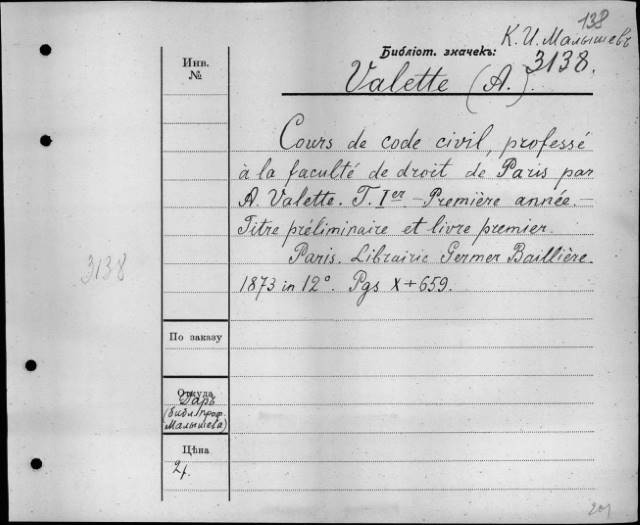 138
К. И. Малышевъ
Библіот. значекъ:
3138.
Инв.
№
Valette (A.).
Cours de code civil, professé
à la faculté de droit de Paris par
A. Valette. T. Ier – Première année. –
Titre préliminaire et livre premier.
Paris. Librairie Germer Baillière.
1873 in 12°. Pgs X+659.
3138
По заказу
Откуда
Даръ
(библ. проф.
Малышева)
Цѣна